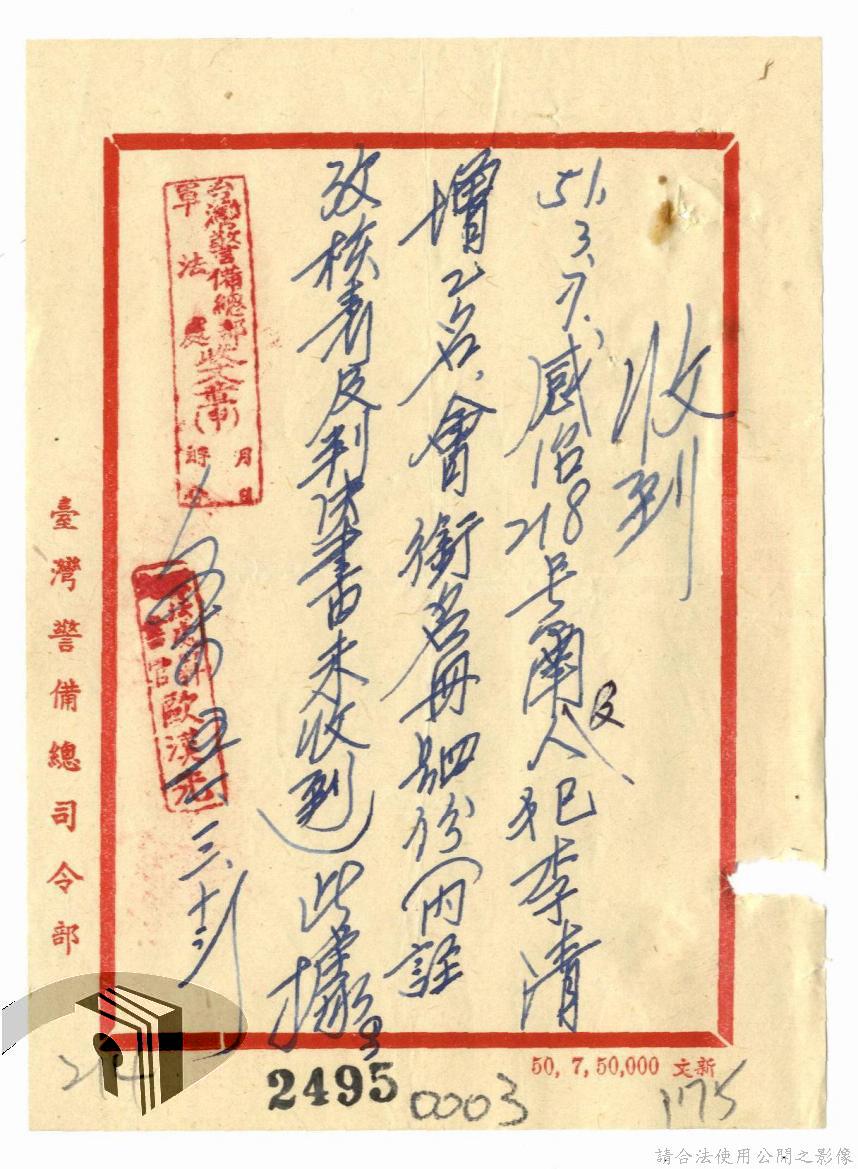 收到
51.3.7.感俗218号蘭及人犯李清
增乙名、會銜名冊四份(內註
考核表及判決書由未收到)此據
台灣警備總部
軍法處收文章(甲)
月 日
時 分
歐漢光
三、十二
臺灣警備總司令部
50, 7, 50,000 文新
2495
0003
1175
214
請合法使用公開之影像